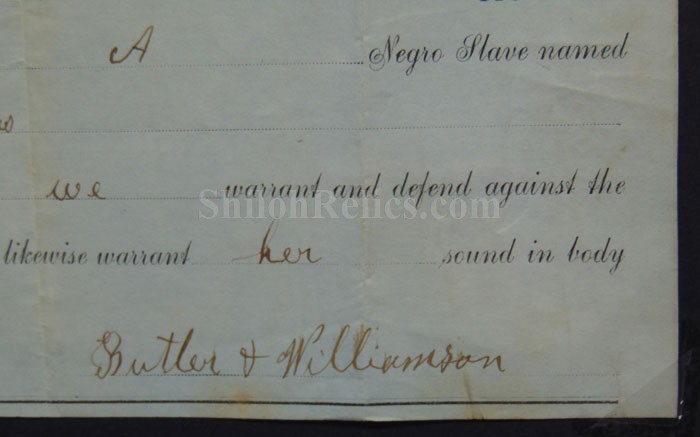 A Negro Slave named
we warrant and defend against the
ShilohRelics.com
likewise warrant her sound in body
Butler & Williamson